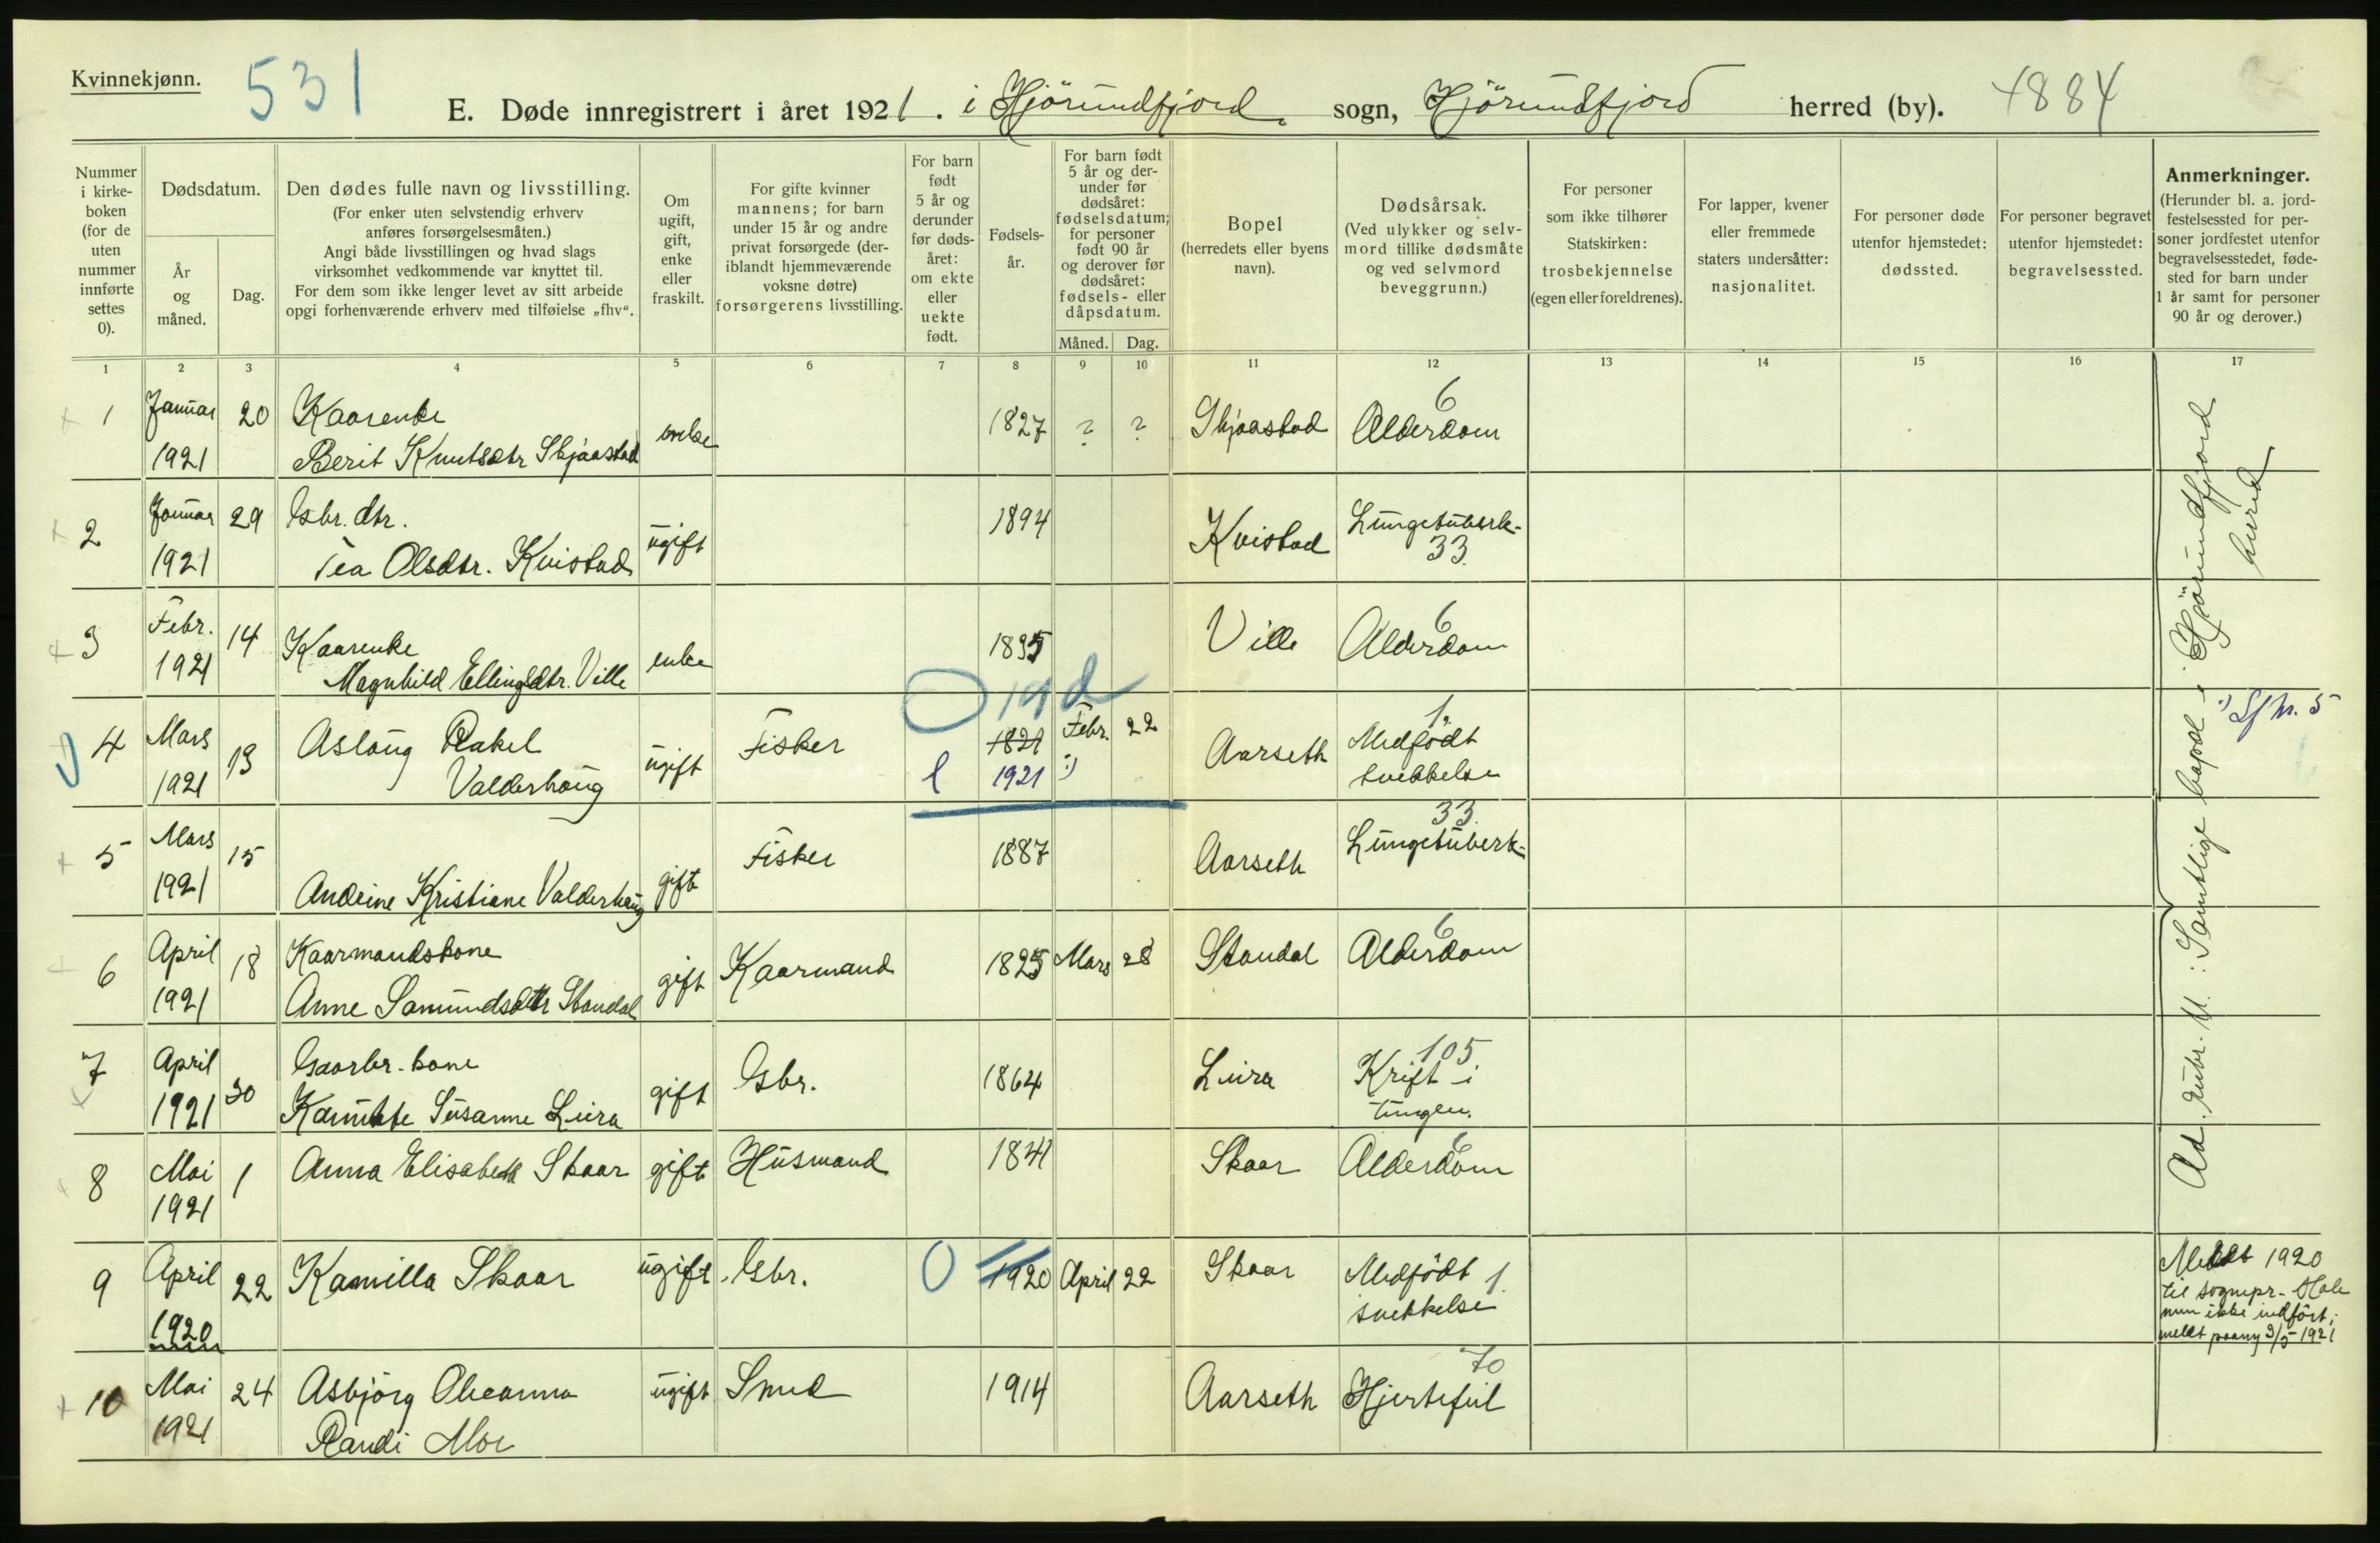 Kvinnekjønn.
531
E. Døde innregistrert i året 1921. i Hjörundfjord sogn, Hjörundfjord herred (by). 4884
Nummer i kirke- boken (for de uten nummer innførte settes 0).
Dødsdatum.
År og måned.
Dag.
Den dødes fulle navn og livsstilling.
(For enker uten selvstendig erhverv
anføres forsørgelsesmåten.)
Angi både livsstillingen og hvad slags
virksomhet vedkommende var knyttet til.
For dem som ikke lenger levet av sitt arbeide
opgi forhenværende erhverv med tilføielse „fhv“.
Om ugift, gift, enke eller fraskilt.
For gifte kvinner
mannens; for barn
under 15 år og andre
privat forsørgede (der-
iblandt hjemmeværende
voksne døtre)
forsørgerens livsstilling.
For barn født 5 år og derunder før døds- året: om ekte eller uekte født.
Fødsels- år.
For barn født
5 år og der-
under før
dødsåret:
fødselsdatum;
for personer
født 90 år
og derover før
dødsåret:
fødsels- eller
dåpsdatum.
Måned. Dag.
Bopel
(herredets eller byens
navn).
Dødsårsak.
(Ved ulykker og selv-
mord tillike dødsmåte
og ved selvmord
beveggrunn.)
For personer
som ikke tilhører
Statskirken:
trosbekjennelse
(egen eller foreldrenes).
For lapper, kvener
eller fremmede
staters undersåtter:
nasjonalitet.
For personer døde
utenfor hjemstedet:
dødssted.
For personer begravet
utenfor hjemstedet:
begravelsessted.
Anmerkninger.
(Herunder bl. a. jord-
festelsessted for per-
soner jordfestet utenfor
begravelsesstedet, føde-
sted for barn under
1 år samt for personer
90 år og derover.)
1 2 3 4 5 6 7 8 9 10 11 12 13 14 15 16 17
1 Januar 1921 20 Kaarenke
Berit Knutsdtr Skjaastad enke 1827 ? ? Skjaastad 6 Alderdom
2 Januar 1921 29 Gbr. dtr.
Tea Olsdtr. Kvistad ugift 1894 Kvistad Lungetuberk- 33.
3 Febr. 1921 14 Kaarenke
Magnhild Ellingsdtr. Ville enke 1835 Ville 6 Alderdom
19 d
4 Mars 1921 13 Aslaug Rakel
Valderhaug ugift Fisker 1821 1921 :) Febr. 22 Aarseth 1. Medfödt
svekkelse
5 Mars 1921 15 Andrine Kristiane Valderhaug gift Fisker 1887 Aarseth 33. Lungetuberk-
6 April 1921 18 Kaarmandskone
Anne Samundsdttr Standal gift Kaarmand 1825 Mars 28 Standal 6 Alderdom
7 April 1921 30 Gaarbr. kone
Susanne Liira gift Gbr. 1864 Liira 105 Kräft i
tungen.
8 Mai 1921 1 Anna Elisabeth Skaar gift Husmand 1841 Skaar 6 Alderdom
9 April 1920 22 Kamilla Skaar ugift Gbr. 1920 April 22 Skaar Medfödt 1.
svekkelse
Meldt 1920
til sognepr. Hole
men ikke indfört;
meldt paany 3/5-1921
10 Mai 1921 24 Asbjörg Oleanna
Randi Moe ugift Smed 1914 Aarseth 70 Hjertefeil
Ad. rubr. 11. : Samtlige bopæl i Hjörundfjord
herred
:) Lf nr. 5